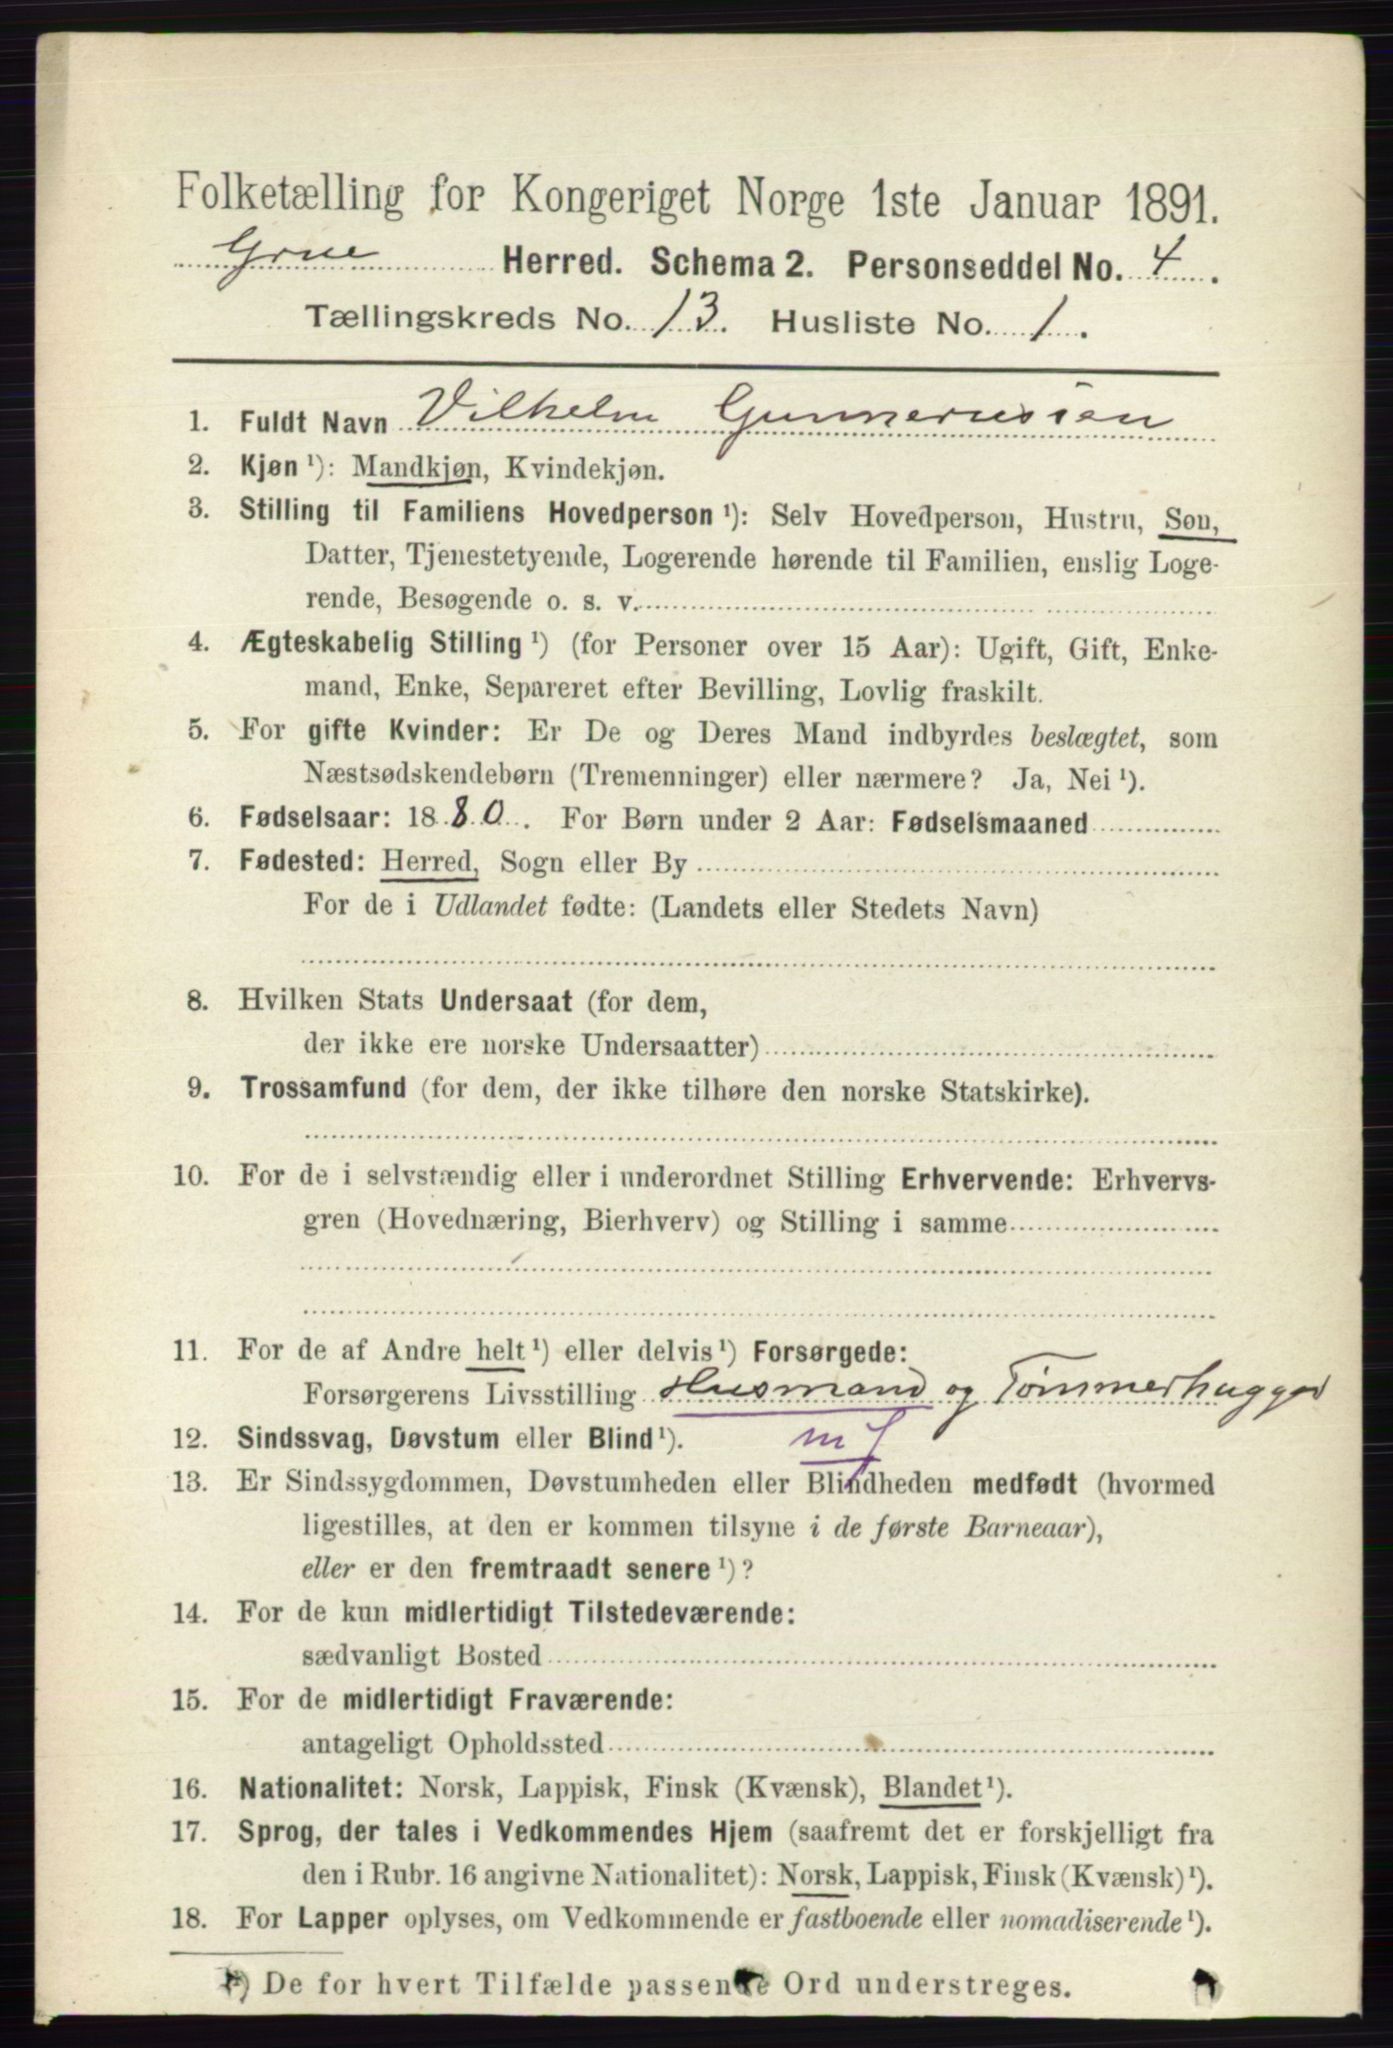 Folketælling for Kongeriget Norge 1ste Januar 1891.
Grue Herred. Schema 2. Personseddel No. 4.
Tællingskreds No. 13. Husliste No. 1.
1. Fuldt Navn Vilhelm Gunnerussen
2. Kjøn ¹): Mandkjøn, Kvindekjøn.
3. Stilling til Familiens Hovedperson ¹): Selv Hovedperson, Hustru, Søn,
Datter, Tjenestetyende, Logerende hørende til Familien, enslig Loge-
rende, Besøgende o. s. v.
4. Ægteskabelig Stilling ¹) (for Personer over 15 Aar): Ugift, Gift, Enke-
mand, Enke, Separeret efter Bevilling, Lovlig fraskilt.
5. For gifte Kvinder: Er De og Deres Mand indbyrdes beslægtet, som
Næstsødskendebørn (Tremenninger) eller nærmere? Ja, Nei ¹).
6. Fødselsaar: 1880. For Børn under 2 Aar: Fødselsmaaned
7. Fødested: Herred, Sogn eller By
For de i Udlandet fødte: (Landets eller Stedets Navn)
8. Hvilken Stats Undersaat (for dem,
der ikke ere norske Undersaatter)
9. Trossamfund (for dem, der ikke tilhøre den norske Statskirke).
10. For de i selvstændig eller i underordnet Stilling Erhvervende: Erhvervs-
gren (Hovednæring, Bierhverv) og Stilling i samme
11. For de af Andre helt ¹) eller delvis ¹) Forsørgede:
Forsørgerens Livsstilling Husmand og Tømmerhugger
12. Sindssvag, Døvstum eller Blind ¹).
13. Er Sindssygdommen, Døvstumheden eller Blindheden medfødt (hvormed
ligestilles, at den er kommen tilsyne i de første Barneaar),
eller er den fremtraadt senere ¹)?
14. For de kun midlertidigt Tilstedeværende:
sædvanligt Bosted
15. For de midlertidigt Fraværende:
antageligt Opholdssted
16. Nationalitet: Norsk, Lappisk, Finsk (Kvænsk), Blandet ¹).
17. Sprog, der tales i Vedkommendes Hjem (saafremt det er forskjelligt fra
den i Rubr. 16 angivne Nationalitet): Norsk, Lappisk, Finsk (Kvænsk) ¹).
18. For Lapper oplyses, om Vedkommende er fastboende eller nomadiserende ¹).
¹) De for hvert Tilfælde passende Ord understreges.